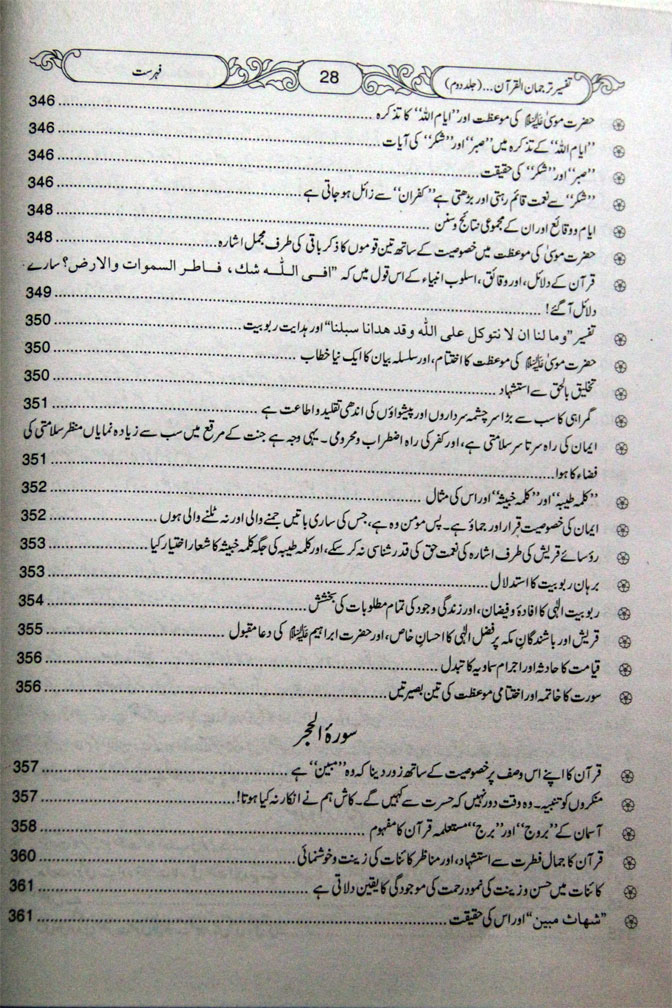 تفسیر ترجمان القرآن...(جلد دوم) 28 فہرست
حضرت موسیٰ علیہ السلام کی موعظت اور "ایام اللہ" کا تذکرہ ... 346
"ایام اللہ" کے تذکرہ میں "صبر" اور "شکر" کی آیات ... 346
"صبر" اور "شکر" کی حقیقت ... 346
"شکر" سے نعمت قائم رہتی اور بڑھتی ہے "کفران" سے زائل ہو جاتی ہے ... 346
ایام و وقائع اور ان کے مجموعی نتائج و سنن ... 348
حضرت موسیٰ علیہ السلام کی موعظت میں خصوصیت کے ساتھ تین قوموں کا ذکر باقی کی طرف مجمل اشارہ ... 348
قرآن کے دلائل، اور وقائق، اسلوب انبیاء کے اس قول میں کہ "افی اللہ شك، فاطر السموات والارض؟ سارے
دلائل آ گئے! ... 349
تفسیر "وما لنا ان لا نتوکل علی الله وقد هدانا سبلنا" اور ہدایت ربوبیت ... 350
حضرت موسیٰ علیہ السلام کی موعظت کا اختتام، اور سلسلہ بیان کا ایک نیا خطاب ... 350
تخلیق بالحق سے استشہاد ... 350
گمراہی کا سب سے بڑا سرچشمہ سرداروں اور پیشواؤں کی اندھی تقلید و اطاعت ہے ... 351
ایمان کی راہ سرتا سر سلامتی ہے، اور کفر کی راہ اضطراب و محرومی۔ یہی وجہ ہے جنت کے مرقع میں سب سے زیادہ نمایاں منظر سلامتی کی
فضاء کا ہوا ... 351
"کلمہ طیبہ" اور "کلمہ خبیثہ" اور اس کی مثال ... 352
ایمان کی خصوصیت قرار اور جماؤ ہے۔ پس مؤمن وہ ہے، جس کی ساری باتیں جمنے والی اور نہ ٹلنے والی ہوں ... 352
رؤسائے قریش کی طرف اشارہ کی نعمت حق کی قدر شناسی نہ کر سکے، اور کلمہ طیبہ کی جگہ کلمہ خبیثہ کا شعار اختیار کیا ... 353
برہان ربوبیت کا استدلال ... 353
ربوبیت الٰہی کا افادہ و فیضان، اور زندگی و وجود کی تمام مطلوبات کی بخشش ... 354
قریش اور باشندگانِ مکہ پر فضل الٰہی کا احسانِ خاص، اور حضرت ابراہیم علیہ السلام کی دعا مقبول ... 355
قیامت کا حادثہ اور اجرام سماویہ کا تبدل ... 356
سورت کا خاتمہ اور اختتامی موعظت کی تین بصیرتیں ... 356
سورۂ الحجر
قرآن کا اپنے اس وصف پر خصوصیت کے ساتھ زور دینا کہ وہ "مبین" ہے ... 357
منکروں کو تنبیہ۔ وہ وقت دور نہیں کہ حسرت سے کہیں گے۔ کاش ہم نے انکار نہ کیا ہوتا! ... 357
آسمان کے "بروج" اور "برج" مستعملہ قرآن کا مفہوم ... 358
قرآن کا جمال فطرت سے استشہاد، اور مناظر کائنات کی زینت و خوشنمائی ... 360
کائنات میں حسن و زینت کی نمود رحمت کی موجودگی کا یقین دلاتی ہے ... 361
"شهاث مبین" اور اس کی حقیقت ... 361